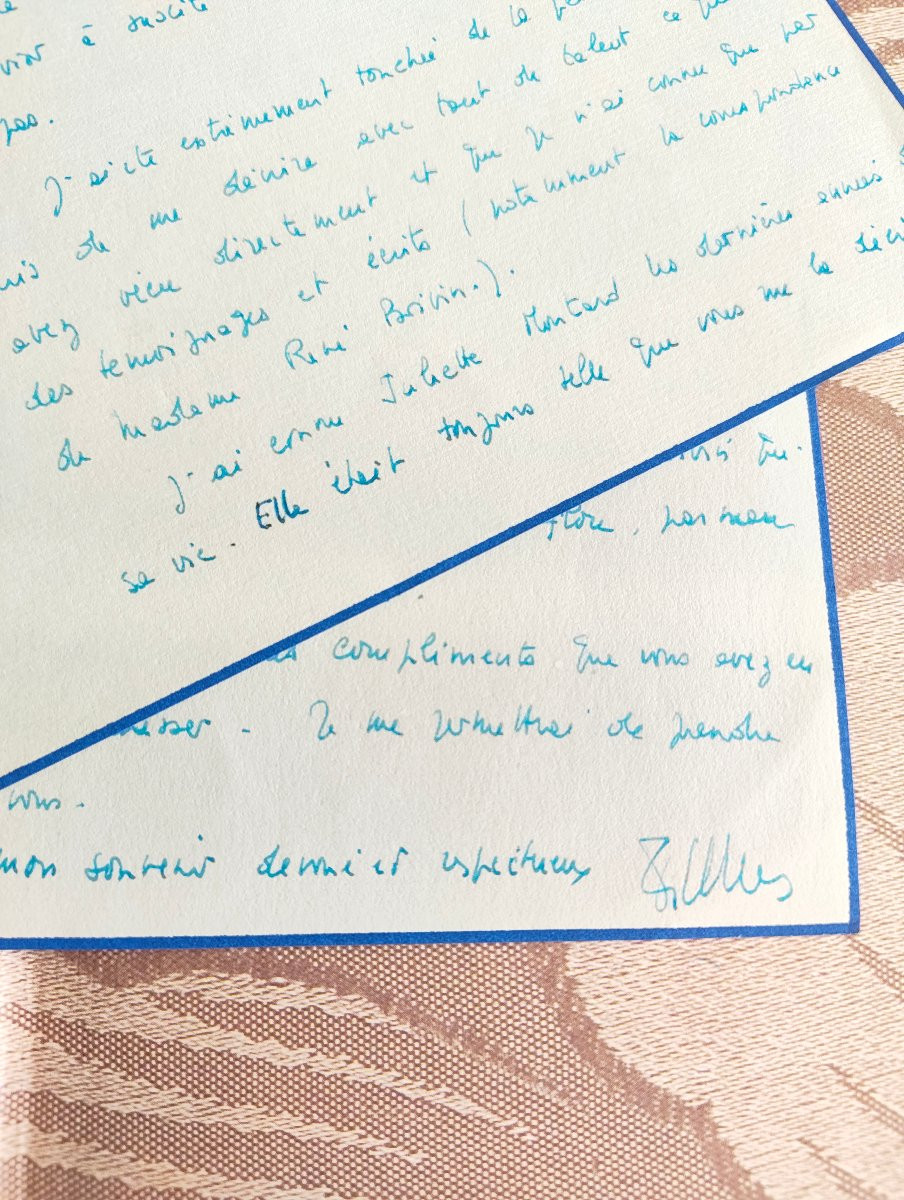 à susciter
pas.
J'ai été extrêmement touchée de la
de me décrire avec tant de talent ce que
avez vécu directement et que je n'ai connu que par
des temoignages et écrits (notamment la correspondance
de madame René Boivin.).
J'ai connu Juliette Moutard les dernières années de
sa vie. Elle était toujours telle que vous me la
flore, par mon
compliments que vous avez eu
Je me permettrai de prendre
vous.
mon souvenir dévoué et respectueux